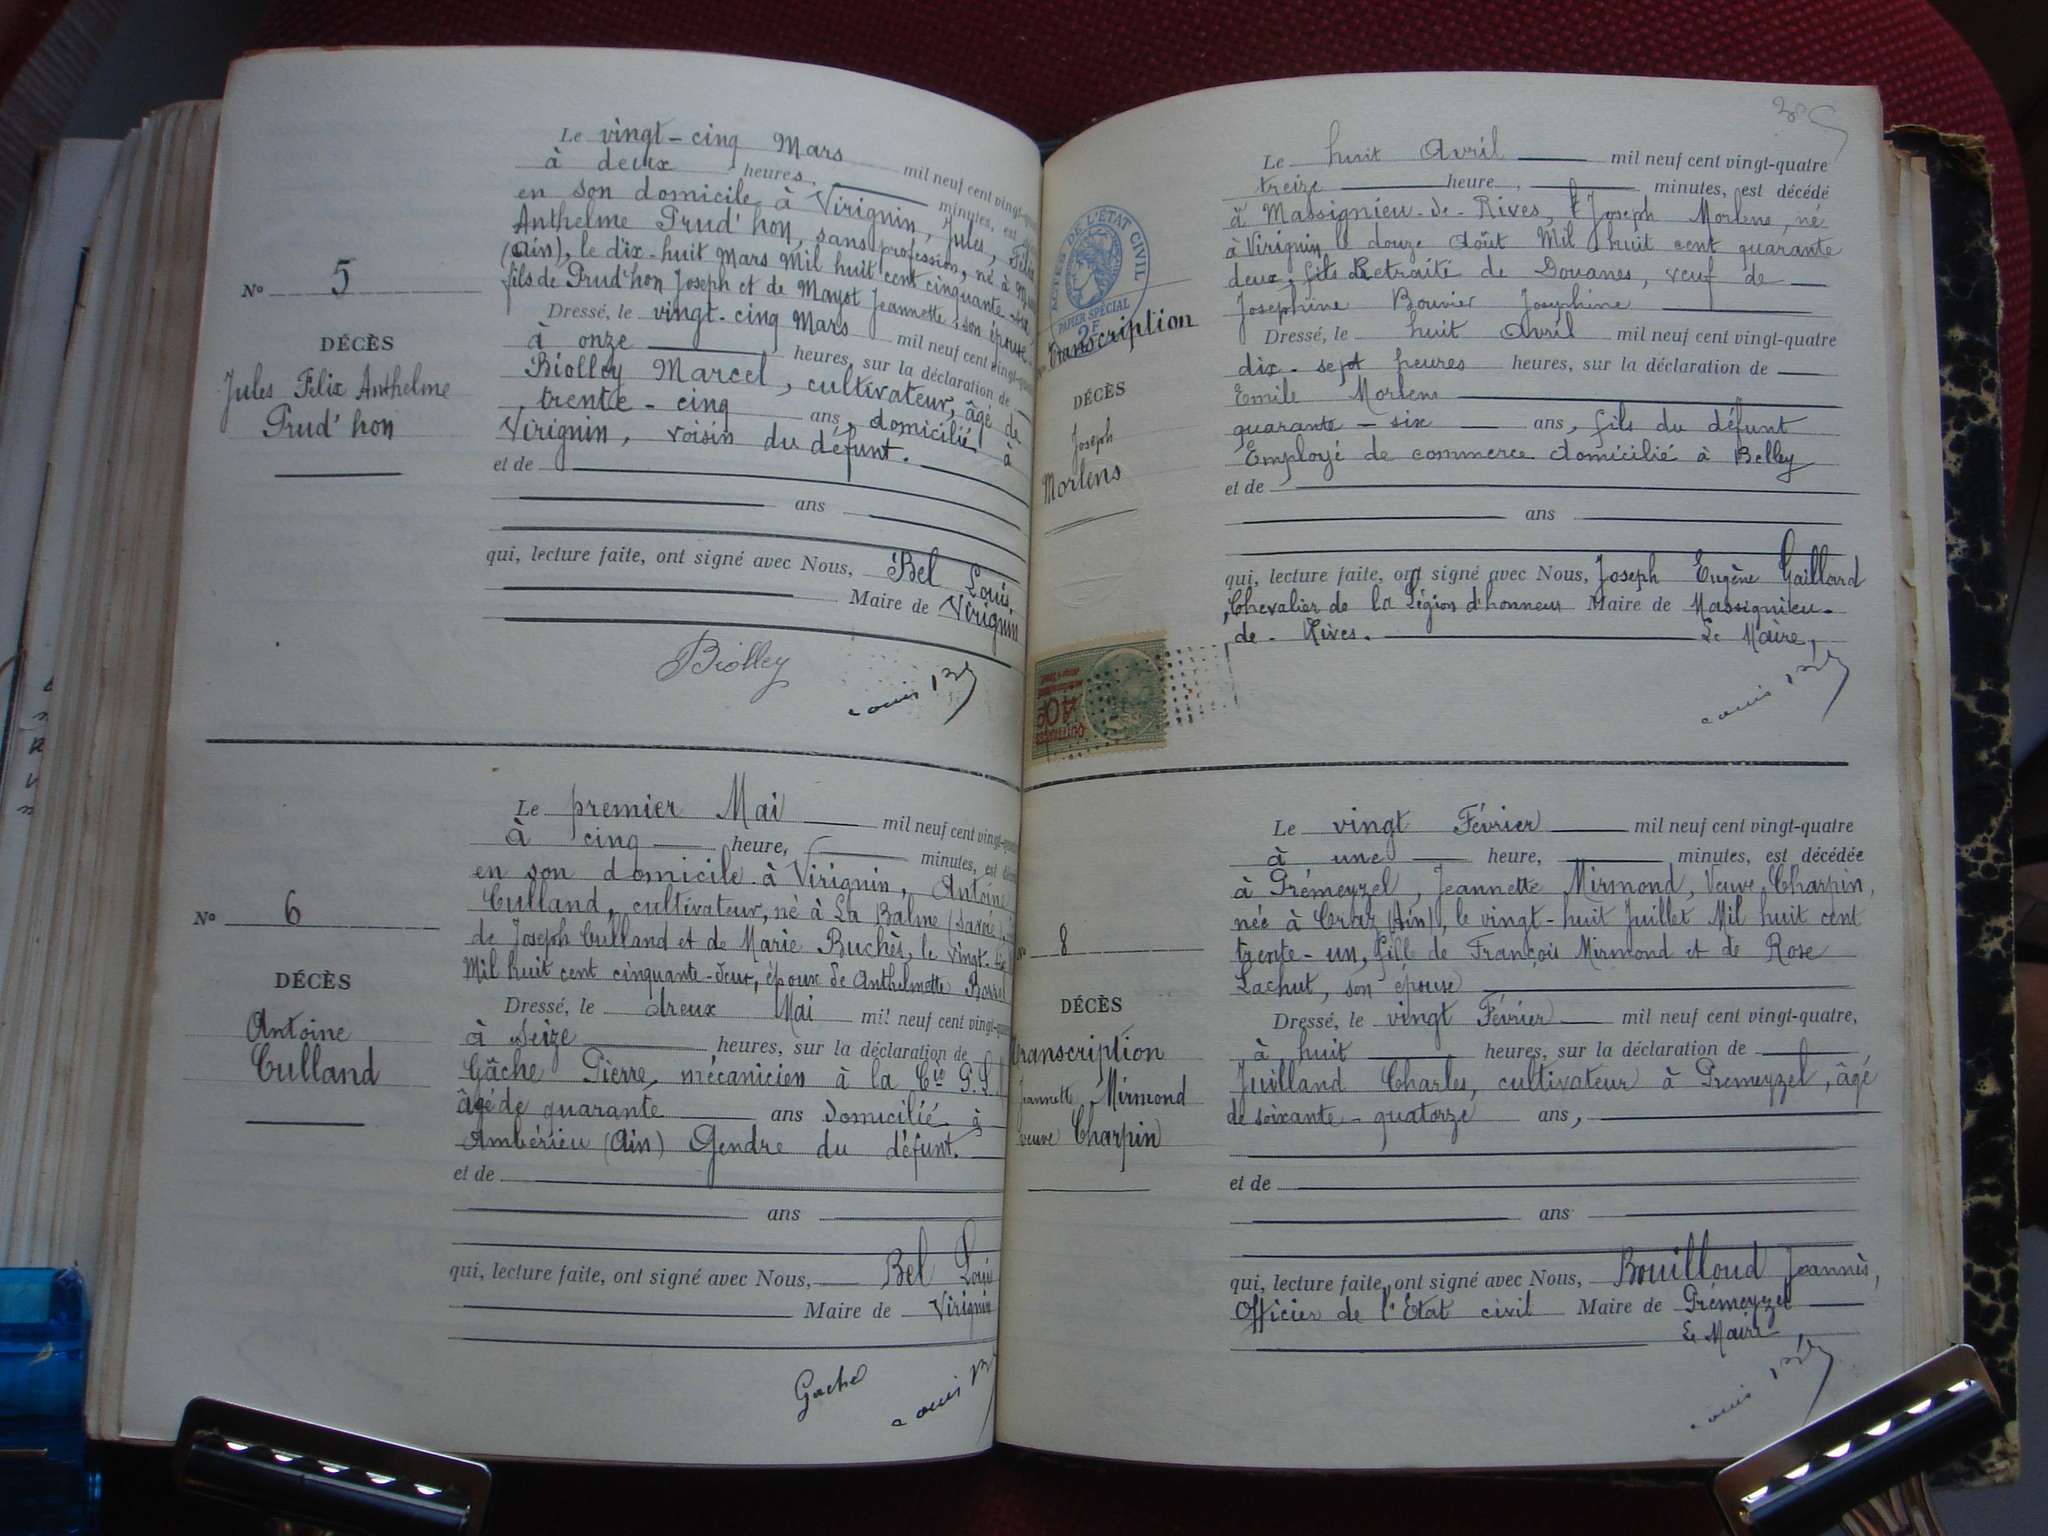 Le vingt-cinq Mars mil neuf cent vingt-
à deux heures, minutes, est
en son domicile à Virignin, Jules, Félix
Anthelme Prud'hon, sans profession, né à
(Ain), le dix-huit Mars Mil huit cent cinquante
fils de Prud'hon Joseph et de Mayot Jeannette, son épouse
Dressé, le vingt-cinq Mars mil neuf cent vingt-
à onze heures, sur la déclaration de
Biolley Marcel, cultivateur, âgé de
trente-cinq ans, domicilié à
Virignin, voisin du défunt.
et de
ans
qui, lecture faite, ont signé avec Nous, Bel Louis,
Maire de Virignin
Biolley
Louis Bel
No 5
DÉCÈS
Jules Felix Anthelme
Prud'hon
Le premier Mai mil neuf cent vingt-
à cinq heure, minutes, est
en son domicile à Virignin, Antoine
Culland, cultivateur, né à La Balme (Savoie),
de Joseph Culland et de Marie Buchès, le vingt-
Mil huit cent cinquante-deux, époux de Anthelmette
Dressé, le deux Mai mil neuf cent vingt-
à seize heures, sur la déclaration de
Gâche Pierre, mécanicien à la Cie
âgé de quarante ans domicilié à
Ambérieu (Ain) Gendre du défunt.
et de
ans
qui, lecture faite, ont signé avec Nous, Bel Louis
Maire de Virignin
Gache
Louis
No 6
DÉCÈS
Antoine
Culland
Le huit Avril mil neuf cent vingt-quatre
treize heure, minutes, est décédé
à Massignieu-de-Rives, Joseph Morlens, né
à Virignin le douze Août Mil huit cent quarante
deux, fils Retraité de Douanes, veuf de
Josephine Bouvier Josephine
Dressé, le huit Avril mil neuf cent vingt-quatre
dix-sept heures heures, sur la déclaration de
Emile Morlens
quarante-six ans, fils du défunt
Employé de commerce domicilié à Belley
et de
ans
qui, lecture faite, ont signé avec Nous, Joseph Eugène Gaillard
Chevalier de la Légion d'honneur Maire de Massignieu-
de-Rives. Le Maire,
Louis Bel
ACTES DE L'ÉTAT CIVIL
PAPIER SPÉCIAL
2F
Transcription
DÉCÈS
Joseph
Morlens
40c
QUITTANCES
Le vingt Février mil neuf cent vingt-quatre
à une heure, minutes, est décédée
à Prémeyzel, Jeannette Mirmond, Veuve Charpin,
née à Craz (Ain), le vingt-huit Juillet Mil huit cent
trente-un, fille de François Mirmond et de Rose
Lachut, son épouse
Dressé, le vingt Février mil neuf cent vingt-quatre,
à huit heures, sur la déclaration de
Juilland Charles, cultivateur à Premeyzel, âgé
de soixante-quatorze ans,
et de
ans
qui, lecture faite, ont signé avec Nous, Bouilloud Joannès,
Officier de l'État civil Maire de Prémeyzel
Le Maire,
Louis Bel
No 8
DÉCÈS
Transcription
Jeannette Mirmond
veuve Charpin